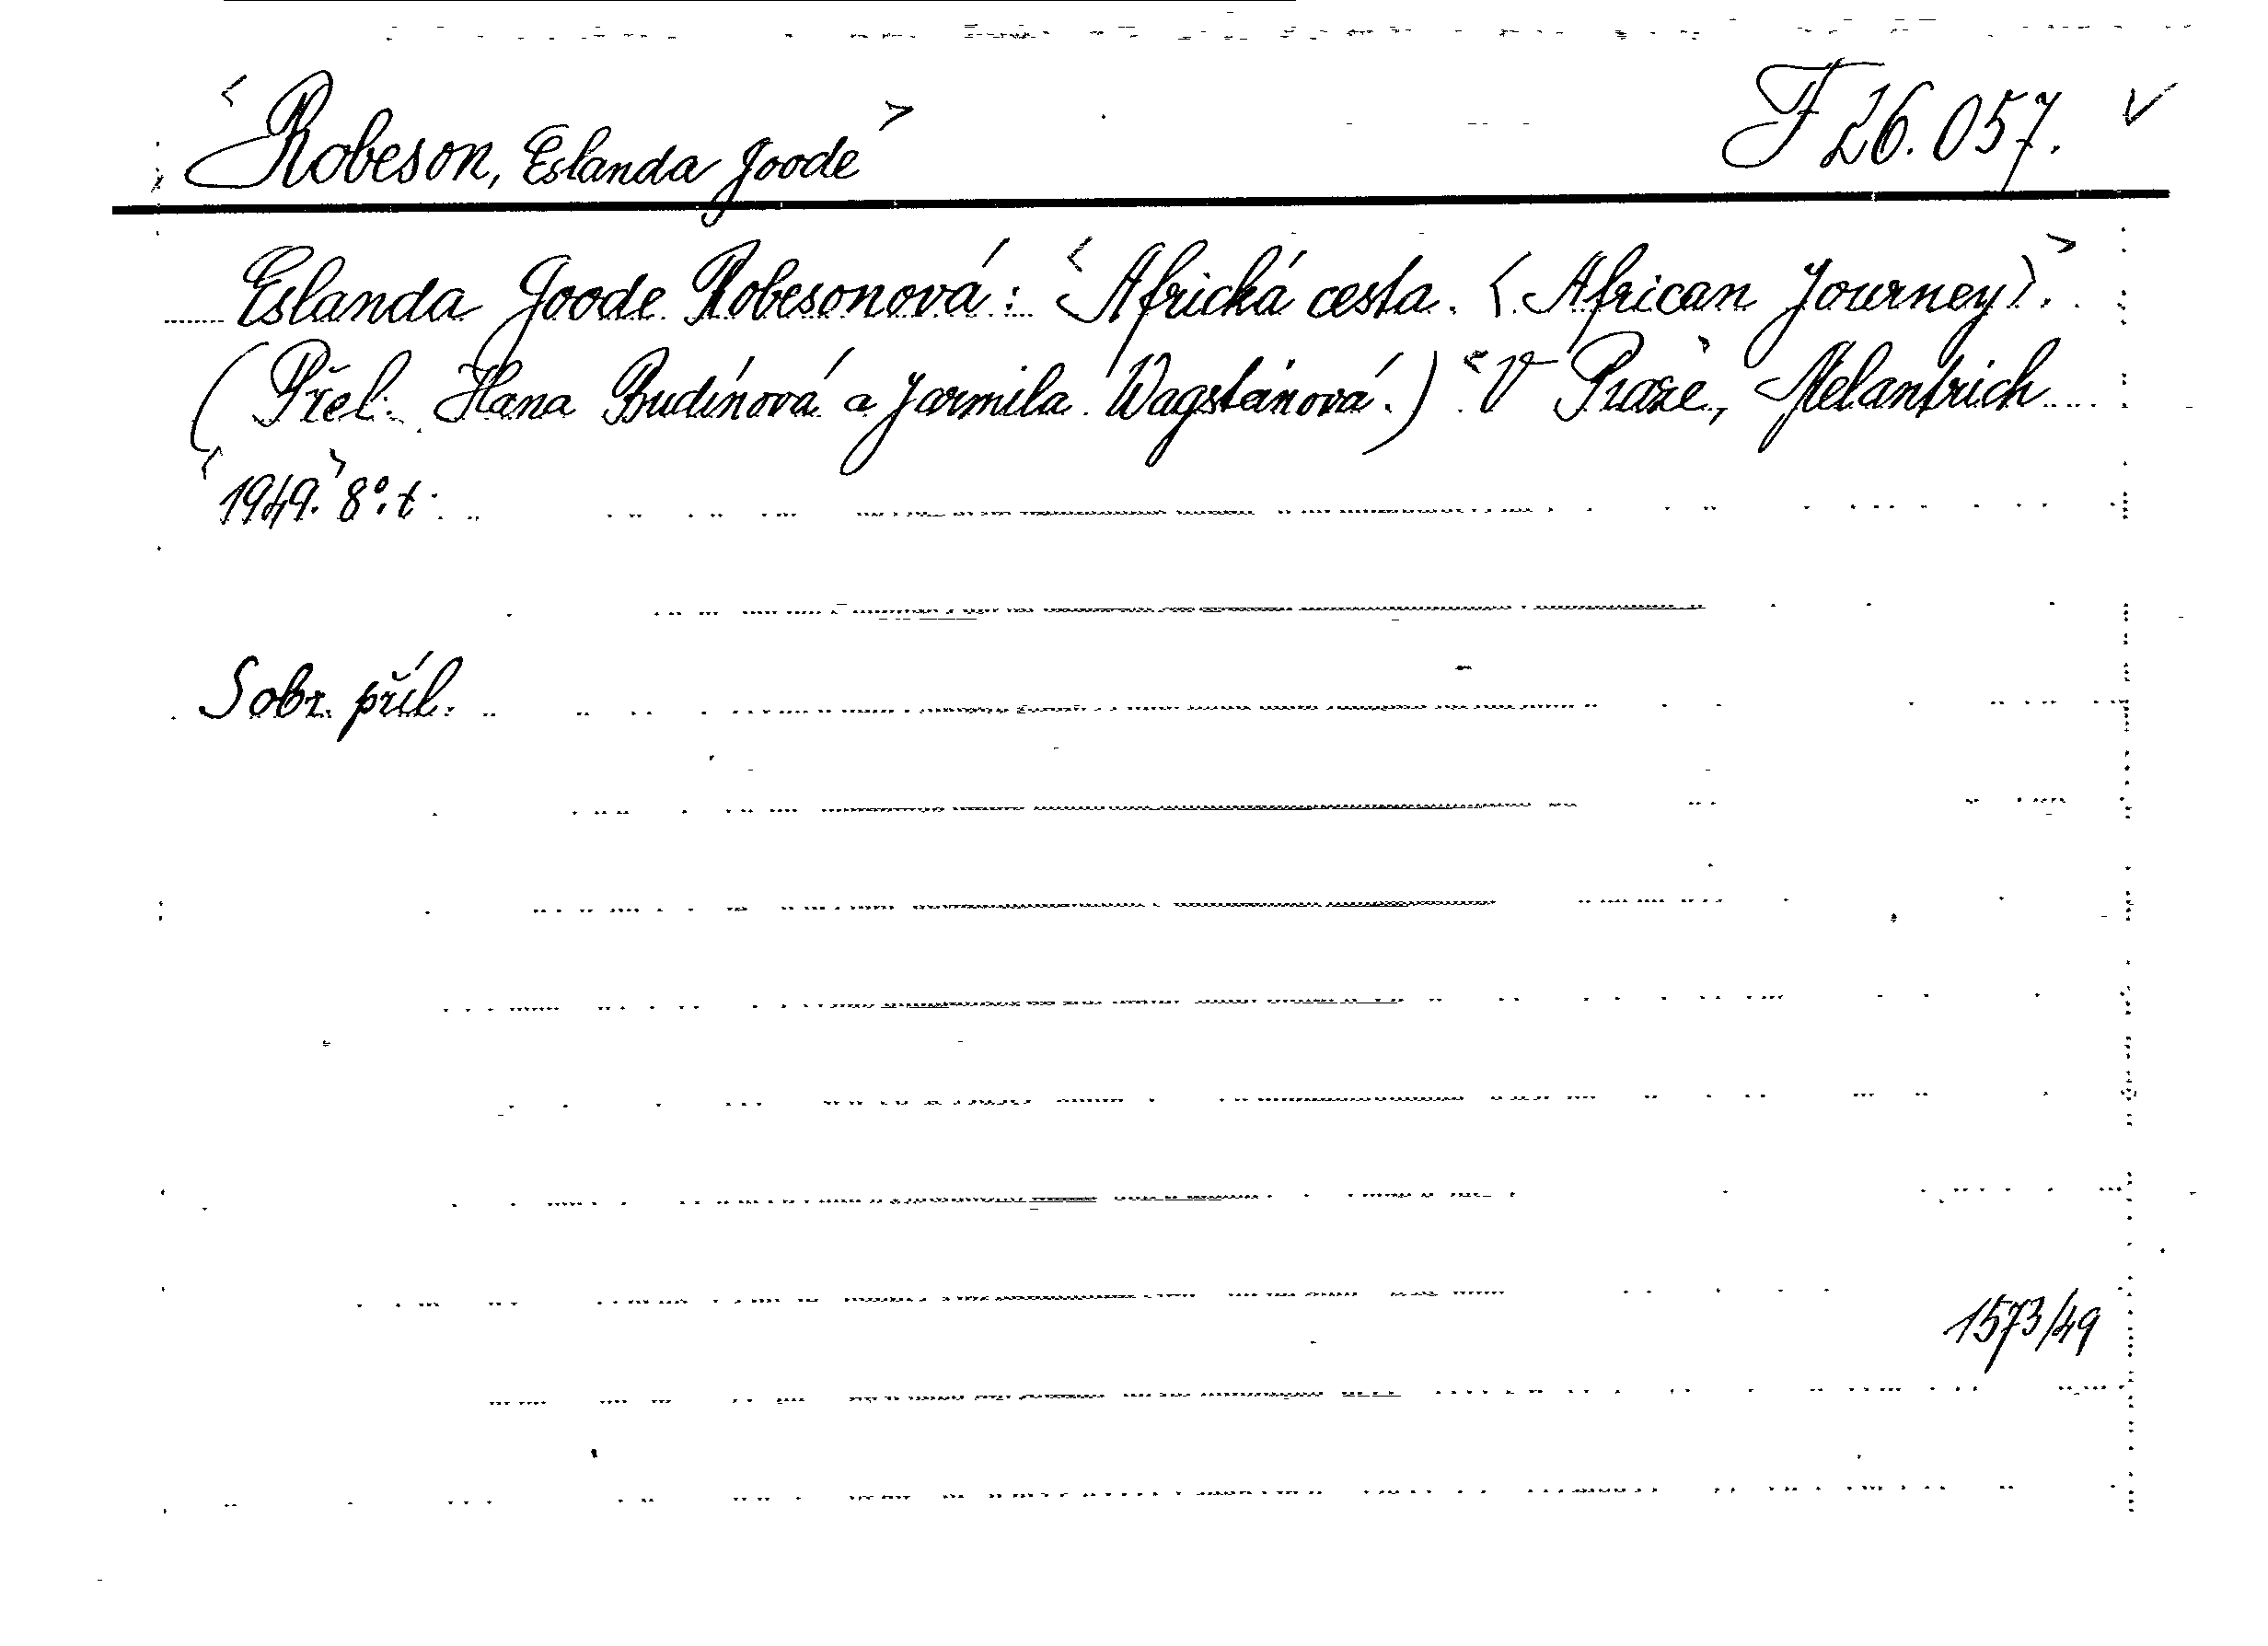 <Robeson, Eslanda Goode> F 26.057. ✓
Eslanda Goode Robesonová: <Africká cesta. <African Journey>.>
(Přel. Hana Budínová a Jarmila Wagsteinová.) <V Praze, Melantrich
<1949.> 8°. t.
S obr. příl.
1573/49